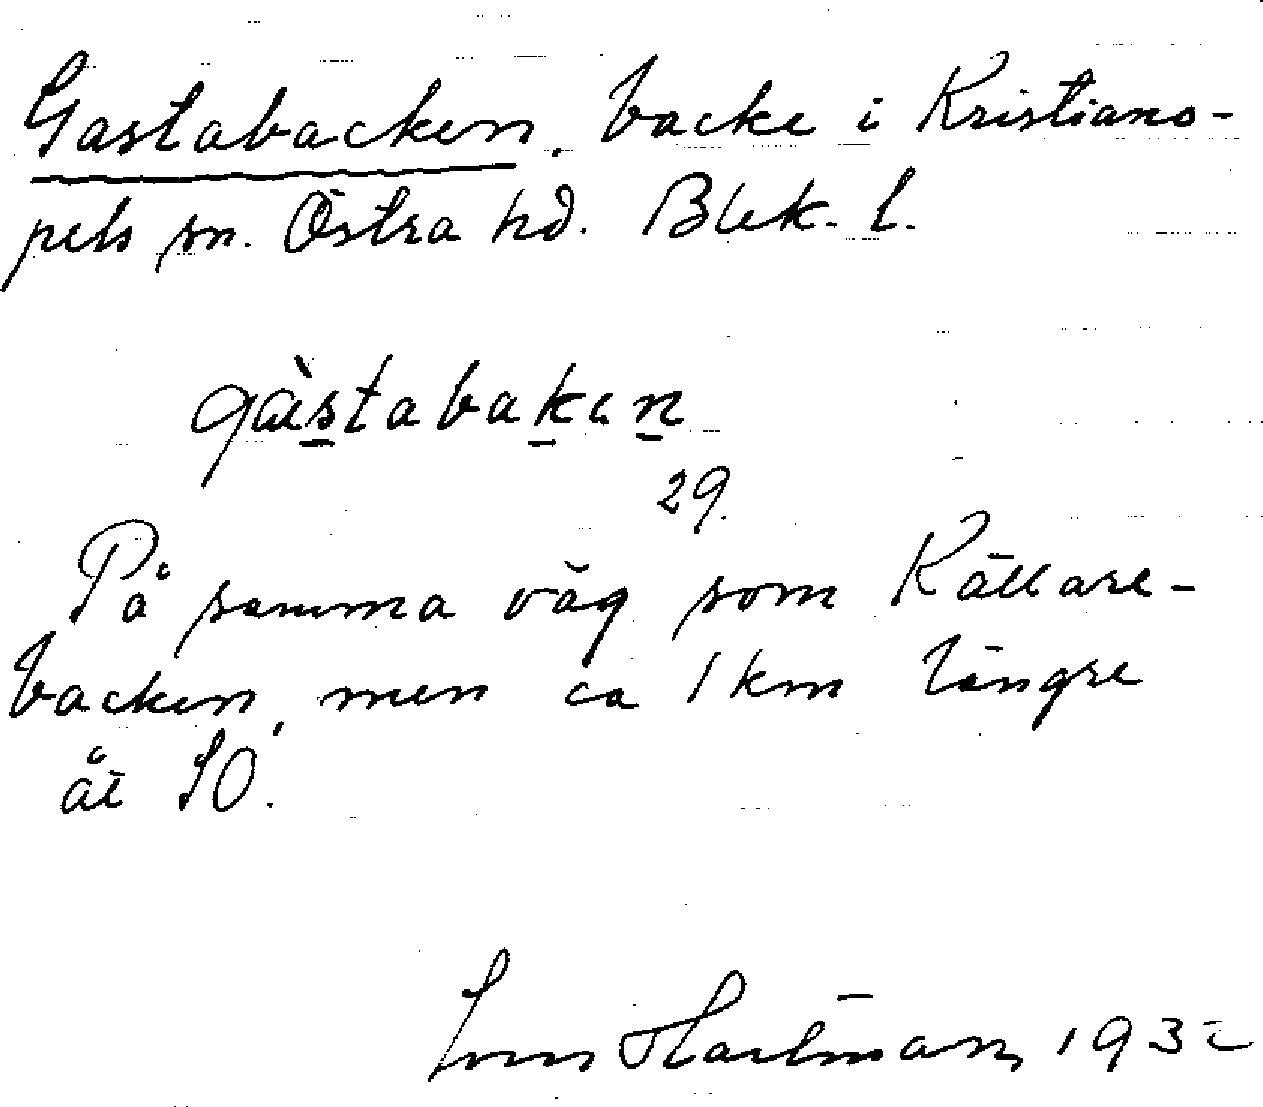 Gastabacken, backe i Kristiano-
pels sn. Östra hd. Blek. l.
gàstabaken
29.
På samma väg som Källare-
backen, men ca 1 km längre
åt SO.
Hartman 1932